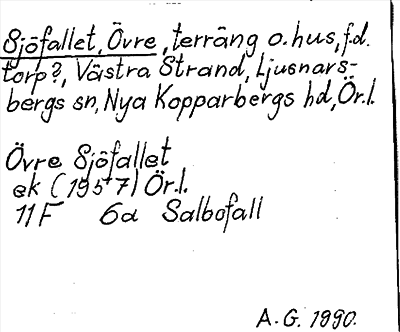 Sjöfallet, Övre, terräng o. hus, f.d.
torp?, Västra Strand, Ljusnars-
bergs sn, Nya Kopparbergs hd, Ör.l.
Övre Sjöfallet
ek (1957) Ör.l.
11F 6a Salbofall
A.G. 1990.